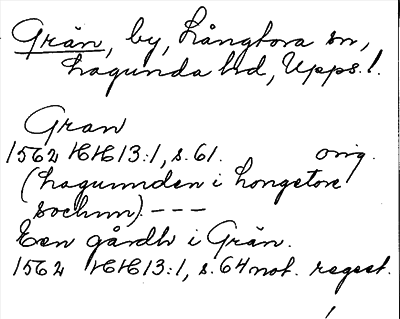 Grän, by, Långtora sn,
Lagunda hd, Upps. l.
Gran
1562 HH 13:1, s. 61. orig.
(Lagunnden i Longetore
sochnn) ---
Een gårdh i Grän.
1562 HH 13:1, s. 64 not. regest.